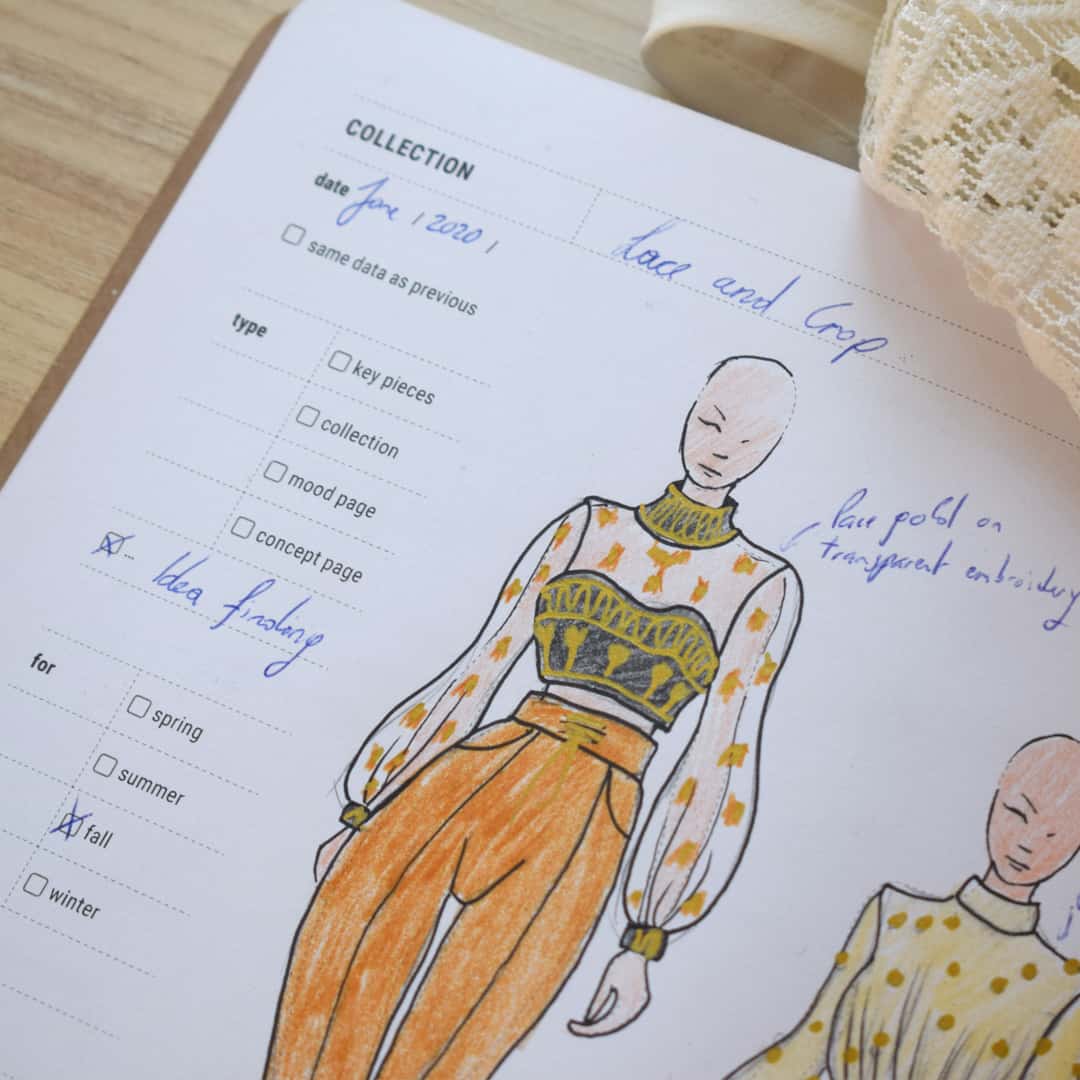 COLLECTION
date June / 2020 /
same data as previous
Lace and Crop
type
key pieces
collection
mood page
concept page
... Idea finding
for
spring
summer
fall
winter
lace gold on
transparent embroidery